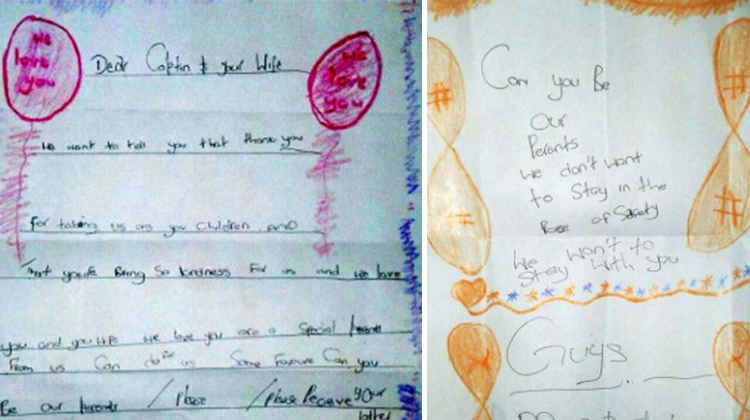 We
love
you
Dear Captin & your Wife
We
love
you
We want to tell you that thank you
For taking us as you children AND
that you're Being So kindness For us and we love
you and you Wife We love you are a Special
From us Can do as Some Favoure Can you
Be our parents / Please / please Receve your
letter
Can you Be
Our
Parents
We don't want
to Stay in the
Place of Safety
We won't to
Stay with you
Guys